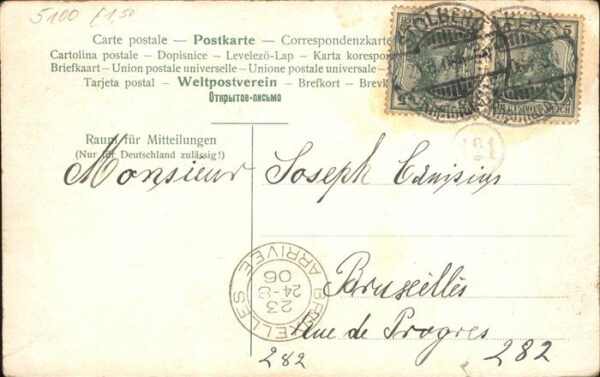 5100 £1,50
Carte postale — Postkarte — Correspondenzkarte
Cartolina postale – Dopisnice – Levelezö-Lap – Karta korespon
Briefkaart – Union postale universelle – Unione postale universale
Tarjeta postal – Weltpostverein – Brefkort – Brevk
Открытое-письмо
Raum für Mitteilungen
(Nur für Deutschland zulässig!)
STOLBERG
5
DEUTSCHES REICH
Monsieur Joseph Canisius
BRUXELLES
23
24-6
06
ARRIVEE
Bruxelles
Rue de Progres
282
282